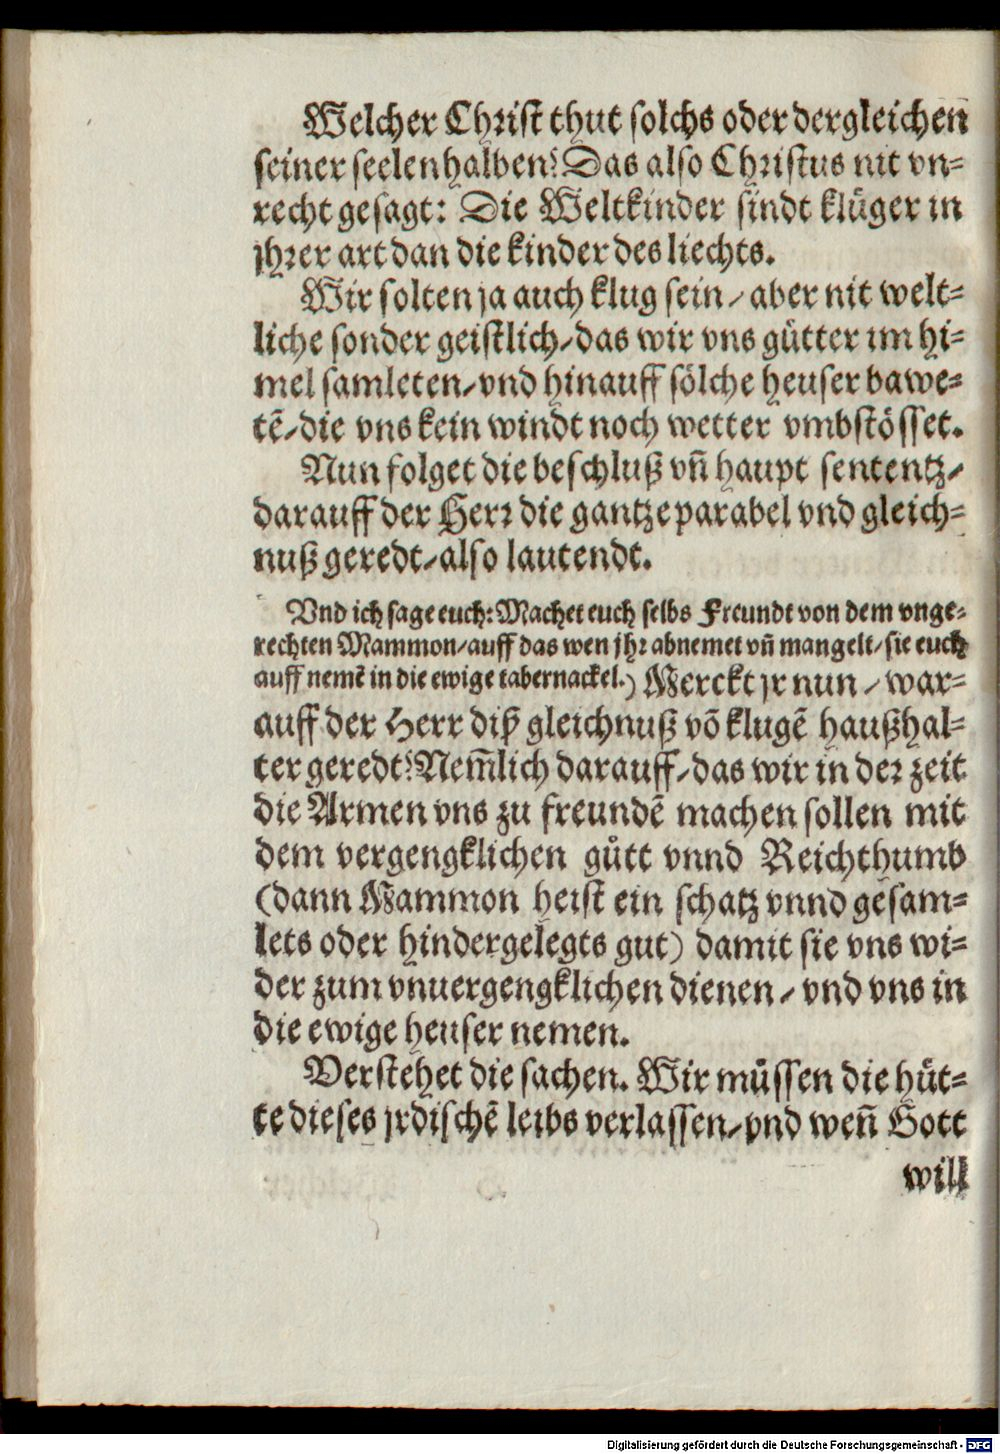 Welcher Christ thut solchs oder dergleichen
seiner seelen halben? Das also Christus nit vn-
recht gesagt: Die Weltkinder sindt klüger in
jhrer art dan die kinder des liechts.
Wir solten ja auch klug sein / aber nit welt-
liche sonder geistlich / das wir vns gütter im hi-
mel samleten / vnd hinauff sölche heuser bawe-
tẽ / die vns kein windt noch wetter vmbstösset.
Nun folget die beschluß vñ haupt sententz /
darauff der Herr die gantze parabel vnd gleich-
nuß geredt / also lautendt.
Vnd ich sage euch: Machet euch selbs Freundt von dem vnge-
rechten Mammon / auff das wen jhr abnemet vñ mangelt / sie euch
auff nemẽ in die ewige tabernackel.) Merckt jr nun / war-
auff der Herr diß gleichnuß võ klugẽ haußhal-
ter geredt? Nem̃lich darauff / das wir in der zeit
die Armen vns zu freundẽ machen sollen mit
dem vergengklichen gütt vnnd Reichthumb
(dann Mammon heist ein schatz vnnd gesam-
lets oder hindergelegts gut) damit sie vns wi-
der zum vnuergengklichen dienen / vnd vns in
die ewige heuser nemen.
Verstehet die sachen. Wir müssen die hüt-
te dieses jrdischẽ leibs verlassen / vnd weñ Gott
will
Digitalisierung gefördert durch die Deutsche Forschungsgemeinschaft - DFG